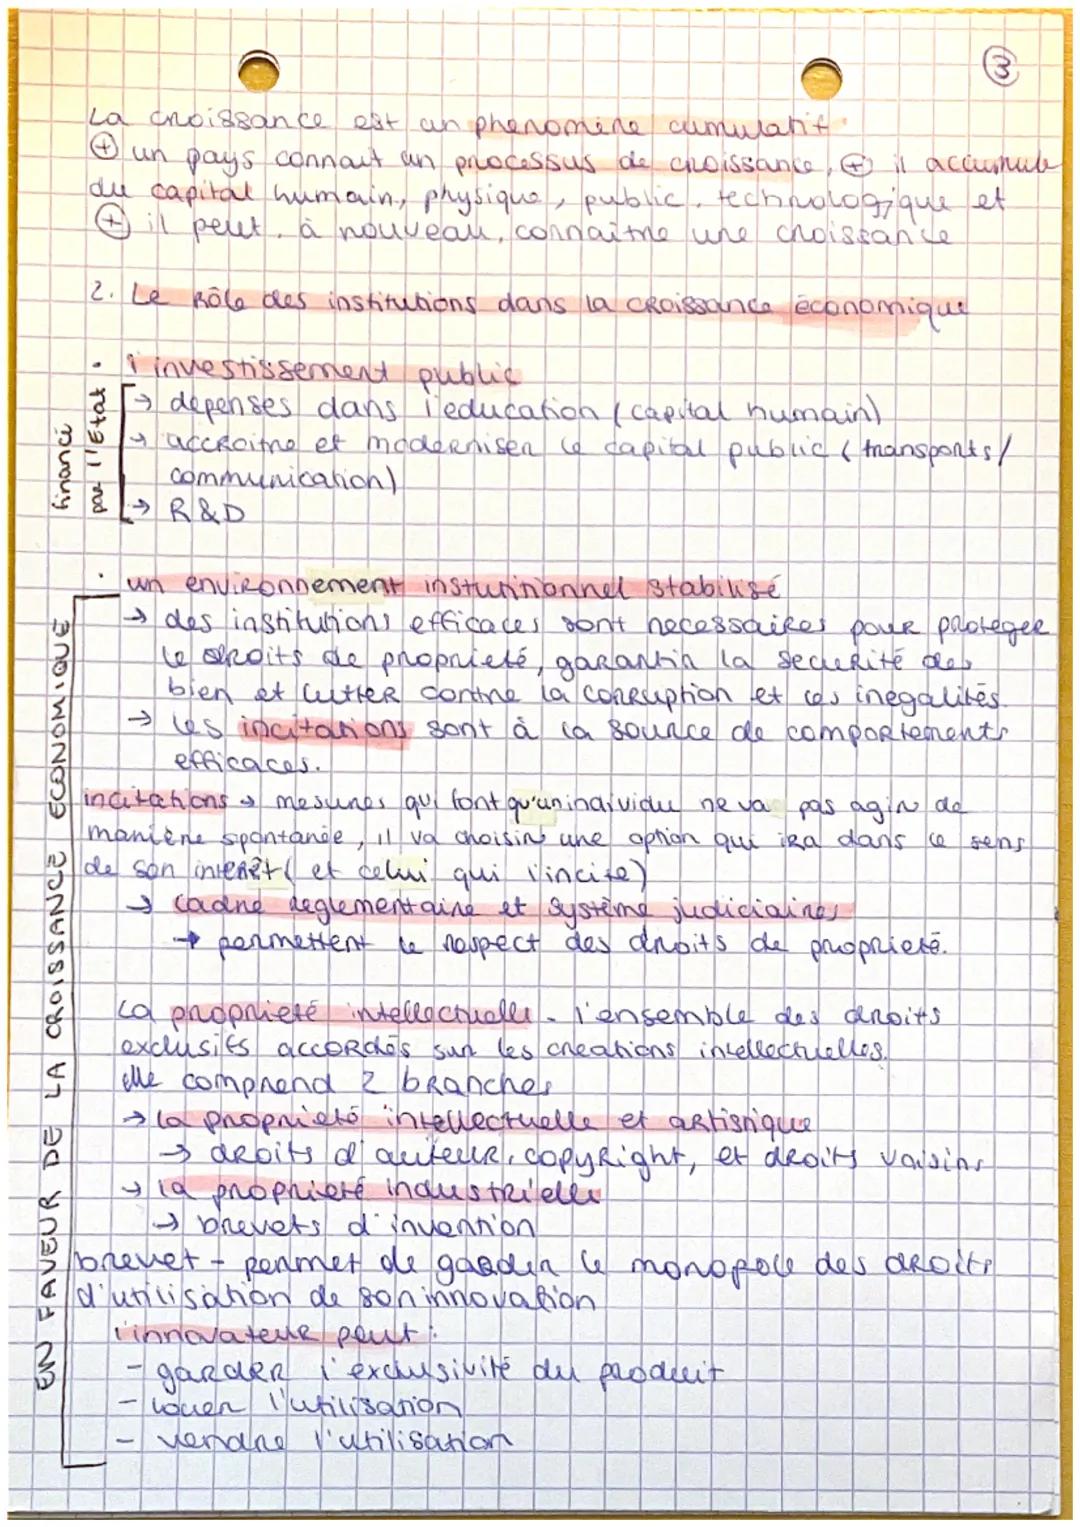 3
La croissance est un phenomène cumulatif
⊕ un pays connait un processus de croissance, ⊕ il accumule
du capital humain, physique, public, technologique et
⊕ il peut, à nouveau, connaître une croissance
2. Le Rôle des institutions dans la CRoissance économique
• l'investissement public
financé
par l'Etat
→ dépenses dans l'education (capital humain)
→ accroitre et moderniser le capital public (transports/
communication)
→ R&D
• un environnement insturinionnel stabilisé
EN FAVEUR DE LA CROISSANCE ECONOMIQUE
→ des institutions efficaces sont necessaires pour proteger
le droits de proprieté, garantir la securité des
bien et lutter contre la corruption et les inegalités.
→ les incitations sont à la source de comportements
efficaces.
incitations → mesures qui font qu'un individu ne va pas agir de
manière spontanée, il va choisir une option qui ira dans le sens
de son interêt (et celui qui l'incite)
→ cadre reglementaire et système judiciaires
→ permettent le respect des droits de proprieté.
La proprieté intellectuelle - l'ensemble des droits
exclusifs accordés sur les creations intellectuelles.
elle comprend 2 branches
→ la proprieté intellectuelle et artistique
→ droits d'auteur, copyright, et droits voisins
→ la proprieté industrielle
→ brevets d'invention
brevet - permet de garder le monopole des droits
d'utilisation de son innovation
l'innovateur peut :
- garder l'exclusivité du produit
- louer l'utilisation
- vendre l'utilisation